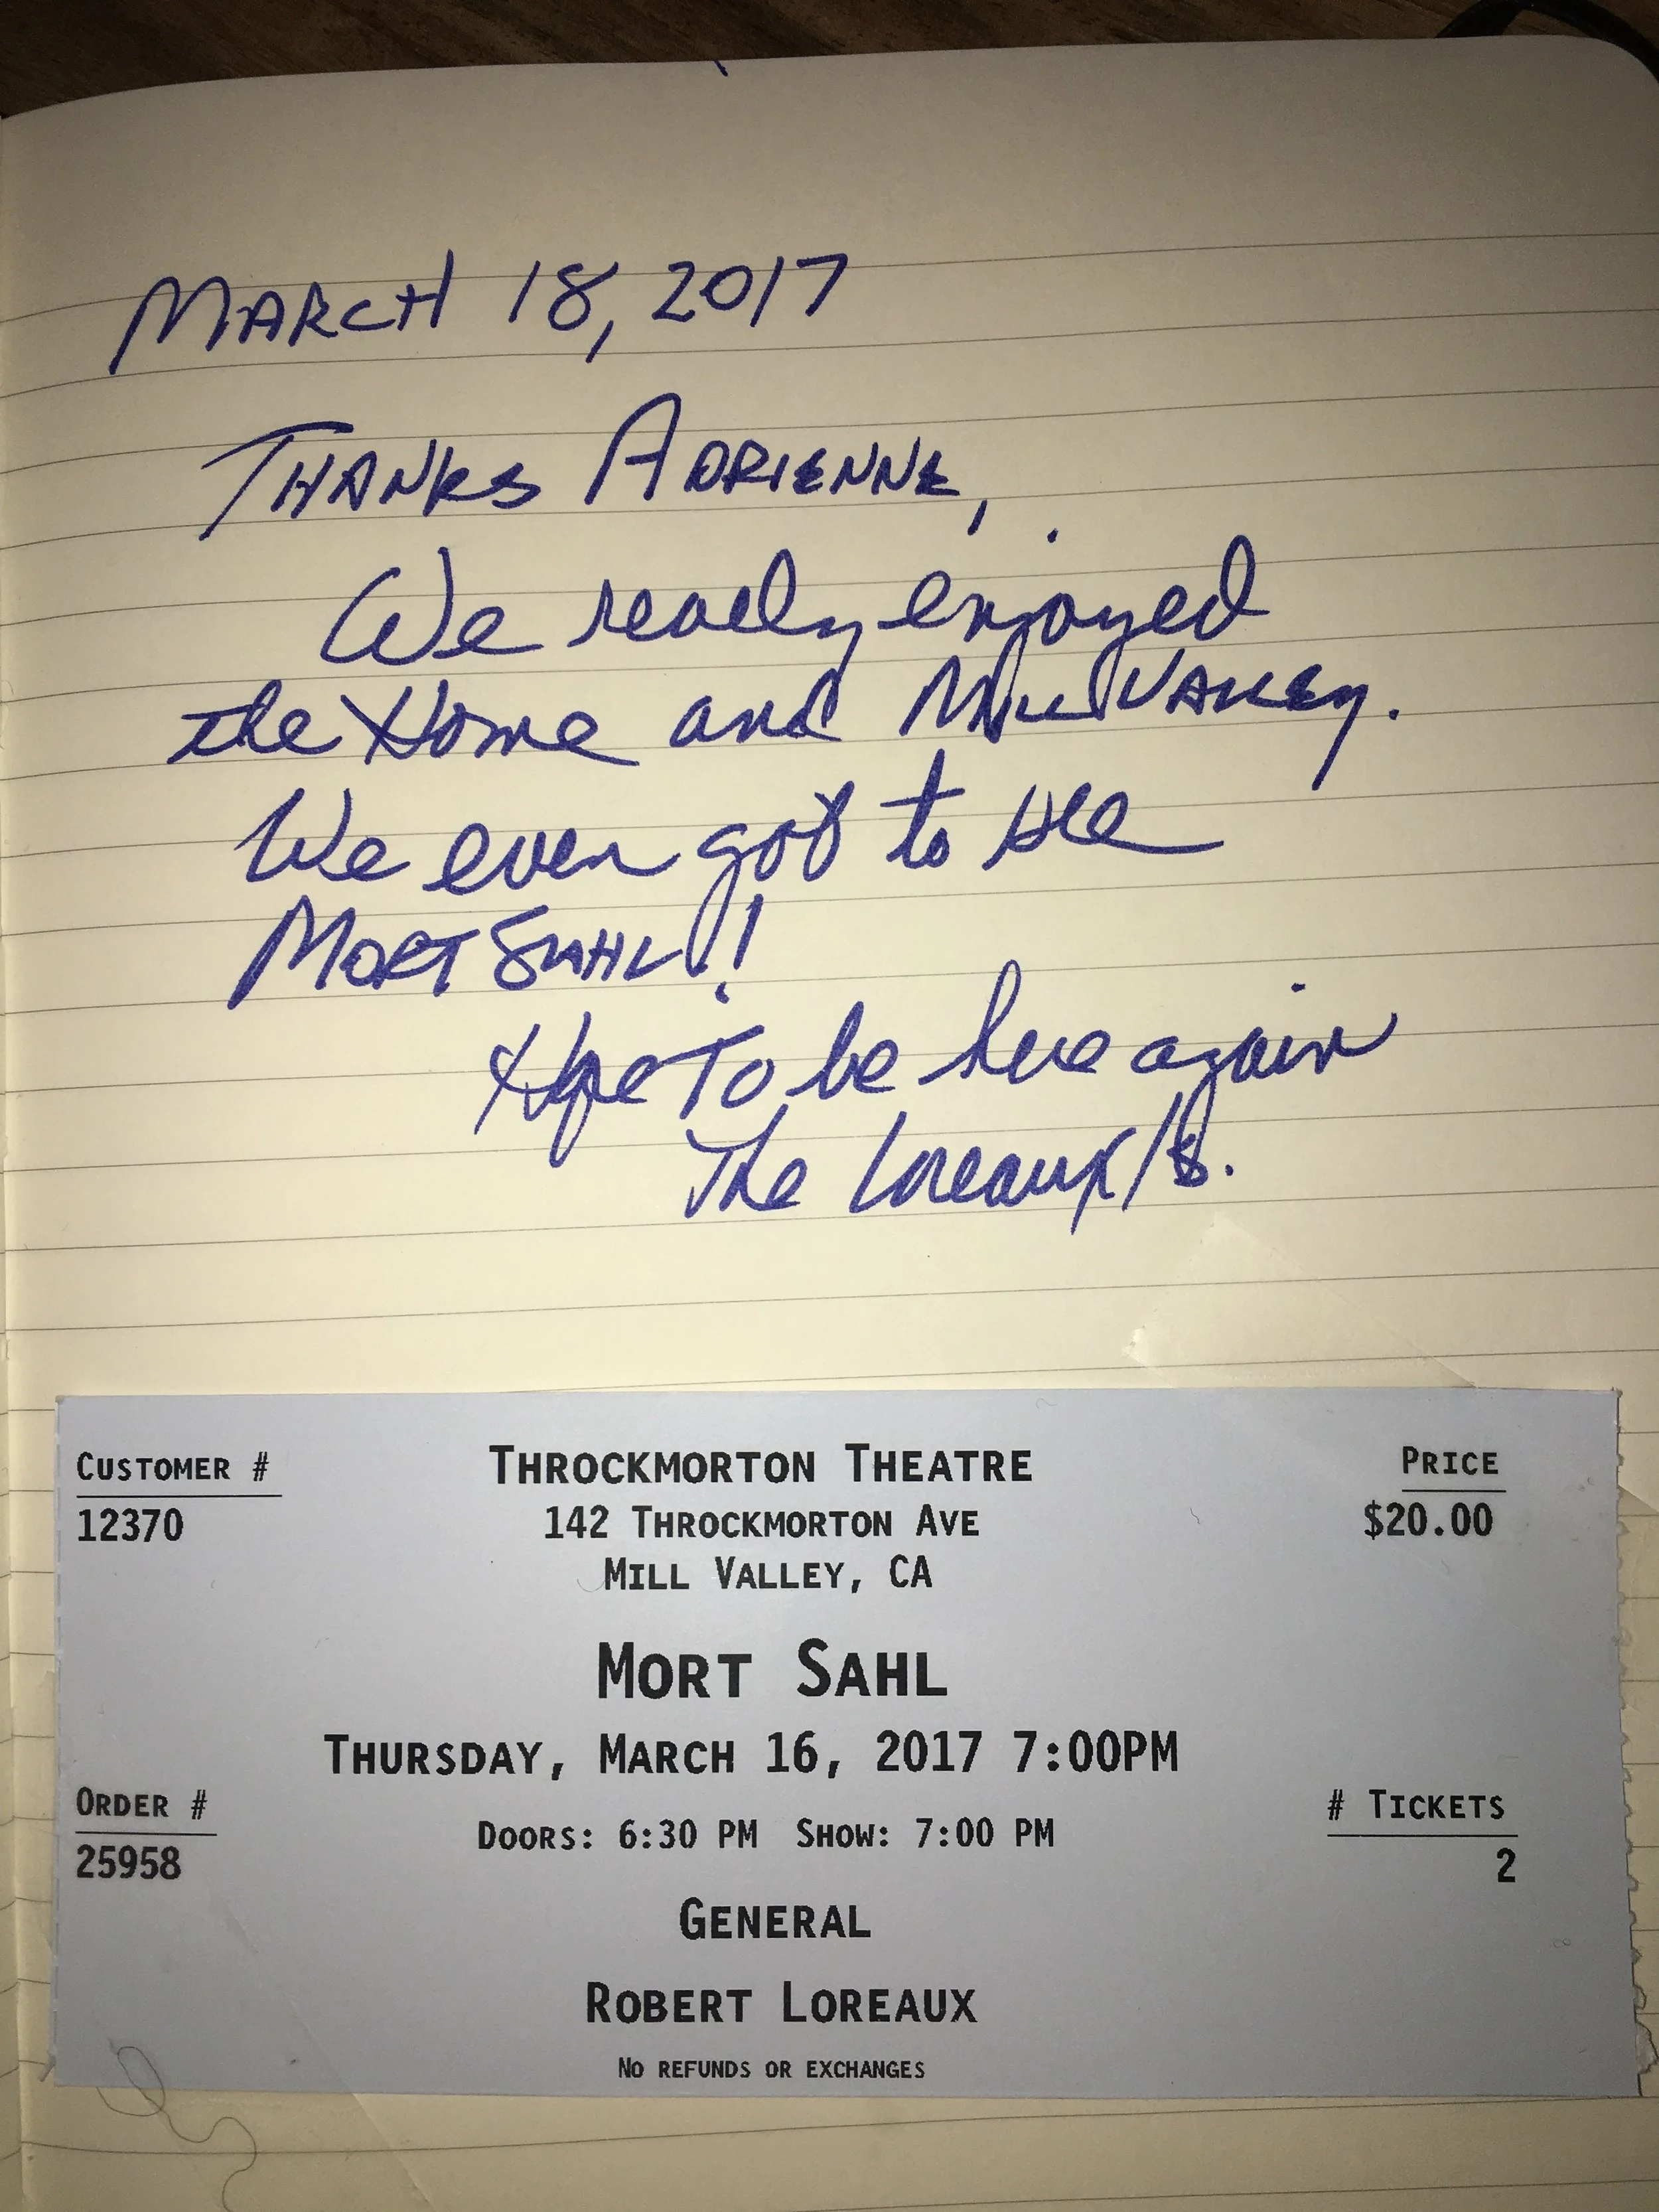 March 18, 2017
Thanks Adrienne,
We really enjoyed
the Home and Mill Valley.
We even got to see
Mort Sahl!!
Hope To be here again
The Loreaux's.
Customer #
12370
Throckmorton Theatre
142 Throckmorton Ave
Mill Valley, CA
Price
$20.00
Mort Sahl
Thursday, March 16, 2017 7:00PM
Doors: 6:30 PM Show: 7:00 PM
Order #
25958
# Tickets
2
General
Robert Loreaux
No refunds or exchanges